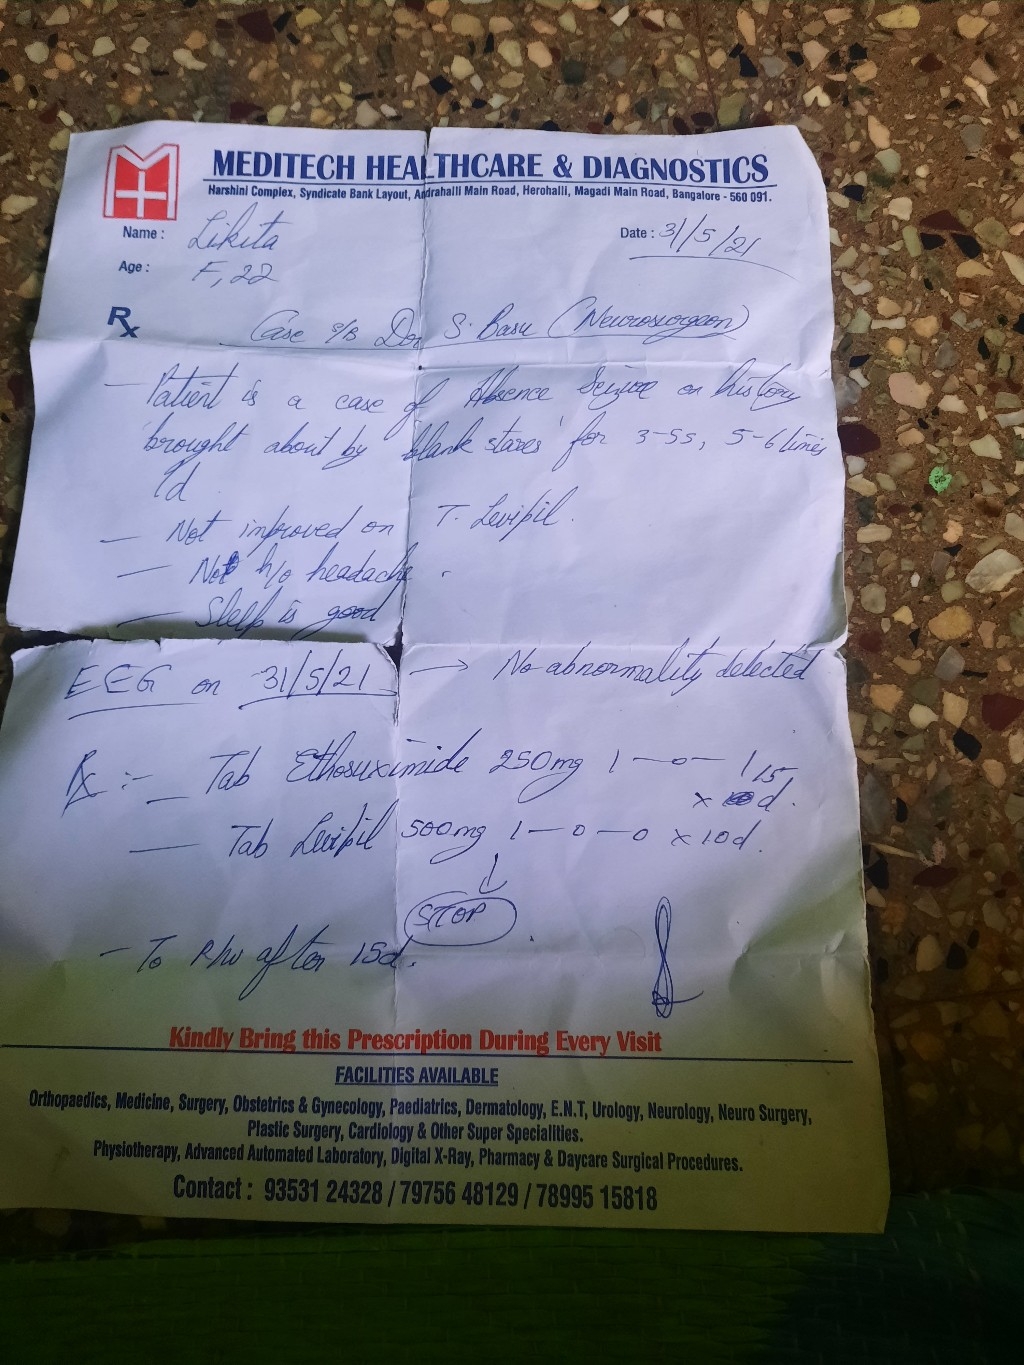 MEDITECH HEALTHCARE & DIAGNOSTICS
Harshini Complex, Syndicate Bank Layout, Andrahalli Main Road, Herohalli, Magadi Main Road, Bangalore - 560 091.
Name : Likita
Date : 31/5/21
Age : F, 22
Rx
Case s/B Dr S. Basu (Neurosurgeon)
— Patient is a case of Absence Seizure on history
brought about by 'blank stares' for 3-5s, 5-6 times
/d
— Not improved on T. Levipil.
— No h/o headache.
— Sleep is good
EEG on 31/5/21 → No abnormality detected
Rx :- — Tab Ethosuximide 250mg 1—0—1 x 15d.
— Tab Levipil 500mg 1—0—0 x 10d.
↓
STOP
— To R/w after 15d.
Kindly Bring this Prescription During Every Visit
FACILITIES AVAILABLE
Orthopaedics, Medicine, Surgery, Obstetrics & Gynecology, Paediatrics, Dermatology, E.N.T, Urology, Neurology, Neuro Surgery,
Plastic Surgery, Cardiology & Other Super Specialities.
Physiotherapy, Advanced Automated Laboratory, Digital X-Ray, Pharmacy & Daycare Surgical Procedures.
Contact : 93531 24328 / 79756 48129 / 78995 15818